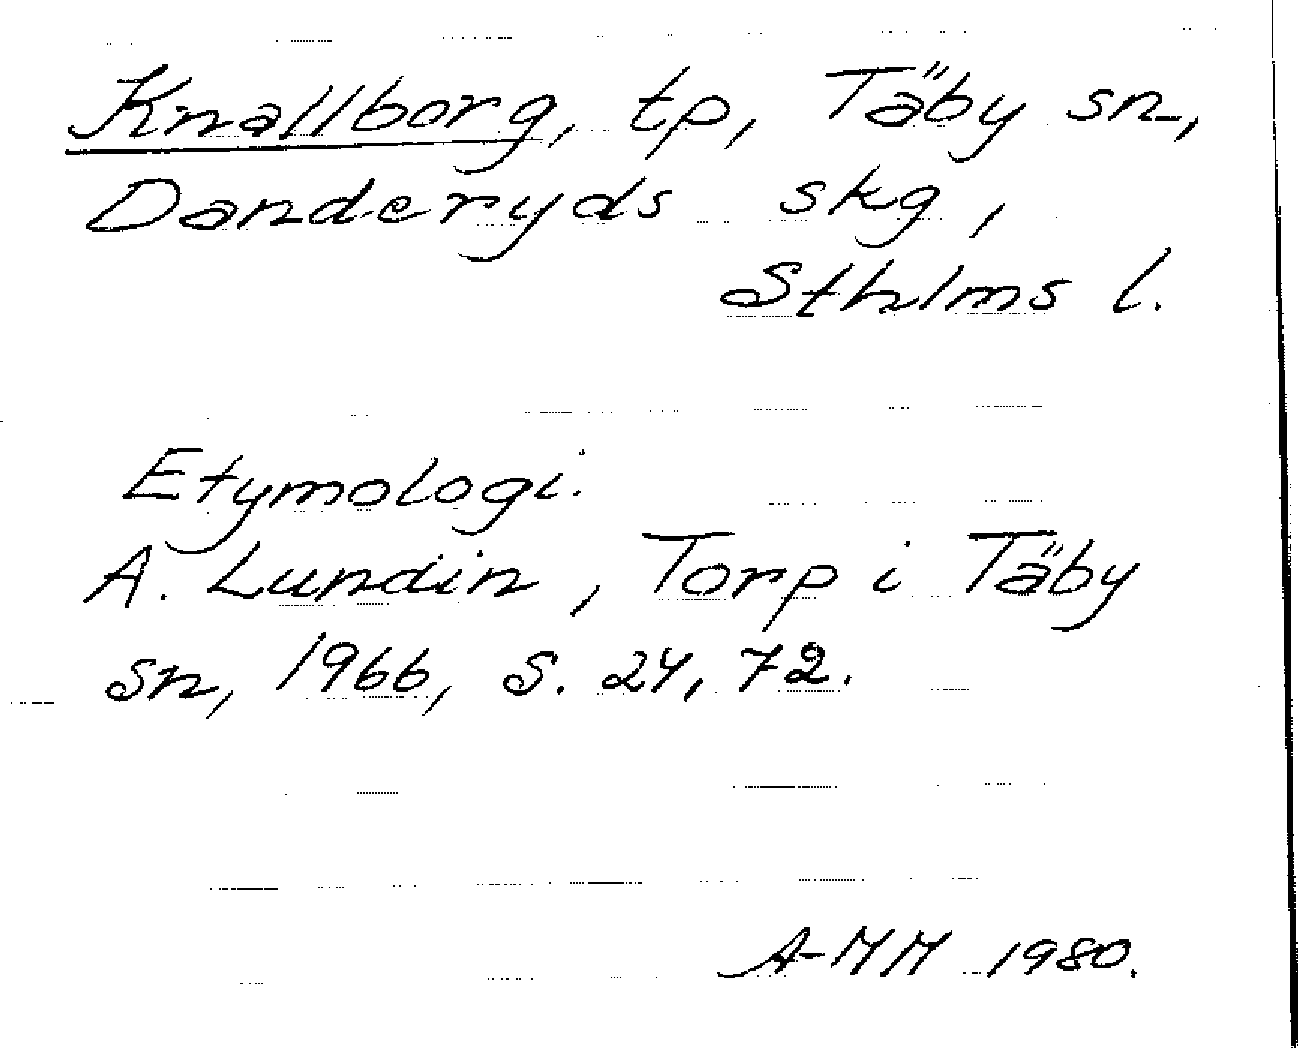 Knallborg, tp, Täby sn,
Danderyds skg,
Sthlms l.
Etymologi.
A. Lundin, Torp i Täby
sn, 1966, s. 24, 72.
A-MM 1980.